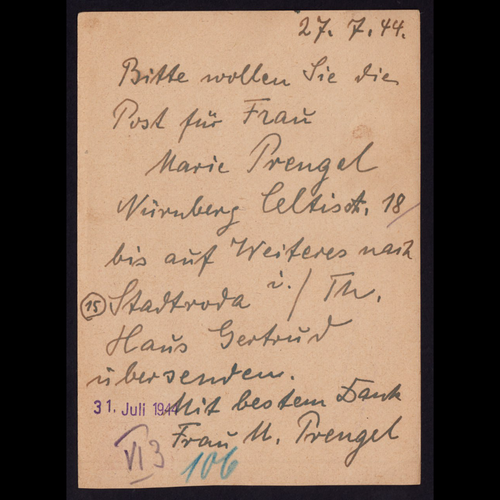 27. 7. 44.
Bitte wollen Sie die
Post für Frau
Marie Prengel
Nürnberg Celtisstr. 18/
bis auf Weiteres nach
(15) Stadtroda i./Th.
Haus Gertrud
übersenden.
31. Juli 1944 Mit bestem Dank
Frau M. Prengel
VI 3
106